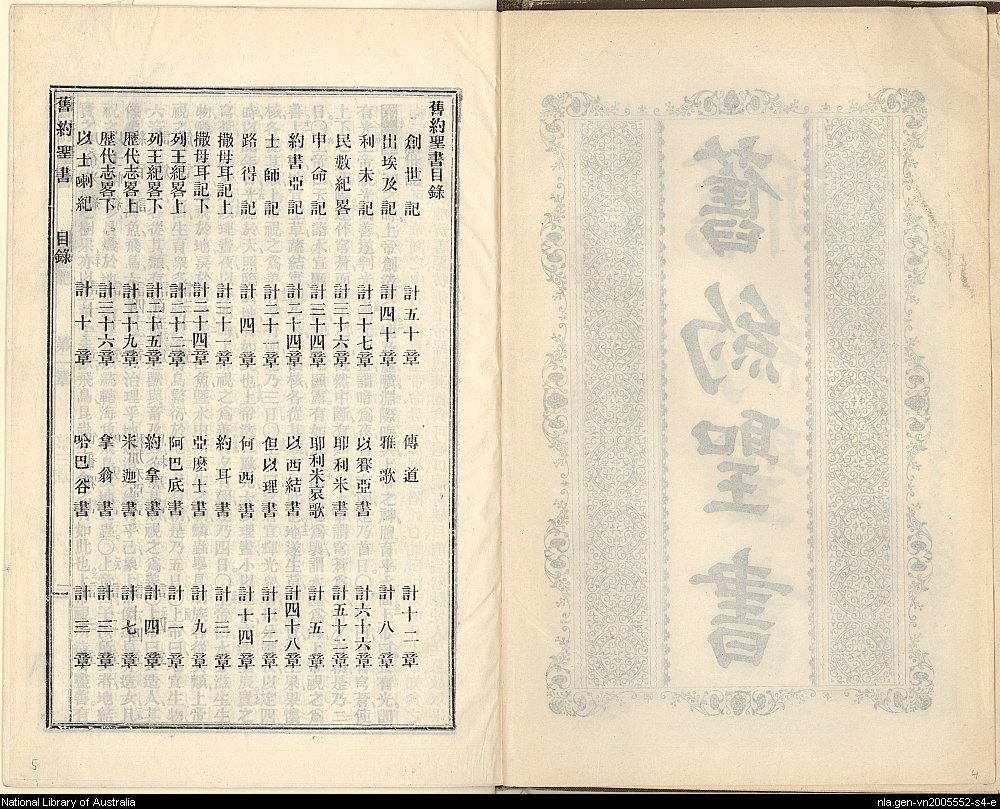 舊約聖書
舊約聖書目錄
創世記 計五十章 傳道 計十二章
出埃及記 計四十章 雅歌 計八章
利未記 計二十七章 以賽亞書 計六十六章
民數紀畧 計三十六章 耶利米書 計五十二章
申命記 計三十四章 耶利米哀歌 計五章
約書亞記 計二十四章 以西結書 計四十八章
士師記 計二十一章 但以理書 計十二章
路得記 計四章 何西書 計十四章
撒母耳記上 計三十一章 約耳書 計三章
撒母耳記下 計二十四章 亞麽士書 計九章
列王紀畧上 計二十二章 阿巴底書 計一章
列王紀畧下 計二十五章 約拿書 計四章
歷代志畧上 計二十九章 米迦書 計七章
歷代志畧下 計三十六章 拿翁書 計三章
以士喇紀 計十章 哈巴谷書 計三章
舊約聖書 目錄
5
4
National Library of Australia
nla.gen-vn2005552-s4-e